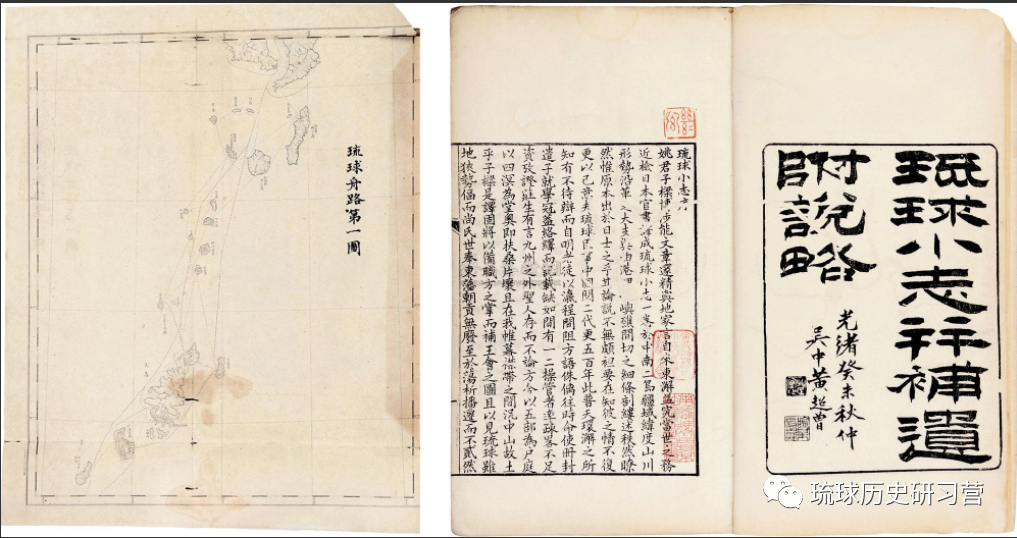 琉球舟路第一圖
琉球小志并補遺
附說略
光緒癸未秋仲
吳中黃超曾
琉球小志
姚君子樑博涉能文章邃精輿地家言自來東瀛益究當世之務
近檢日本官書譯成琉球小志一卷於中南二島疆域緯度山川
形勢沿革 大 泊港 嶼礁間切之細條剖縷述秩然瞭
然惟原本出於日士之手其論說不無頗袒要在知彼之情不復
更以己意夫琉球臣事中國閱二代更五百年此普天環瀛之所
知有不待辯而自明者徒以瀛程間阻方語侏 往時命使冊封
遣子就學冠蓋絡繹而記載缺如間有一二操管者率疎畧不足
資攷證莊生有言九州之外聖人存而不論方今以五部為戶庭
以四溟為堂奧即扶桑片壤且在我帷幕襟帶之間況中山故土
乎子樑是譯固將以備職方之掌而補王會之圖且以見琉球雖
地狹勢偪而尚氏世奉東藩朝貢無廢至於蕩析播遷而不貳然
琉球历史研习营